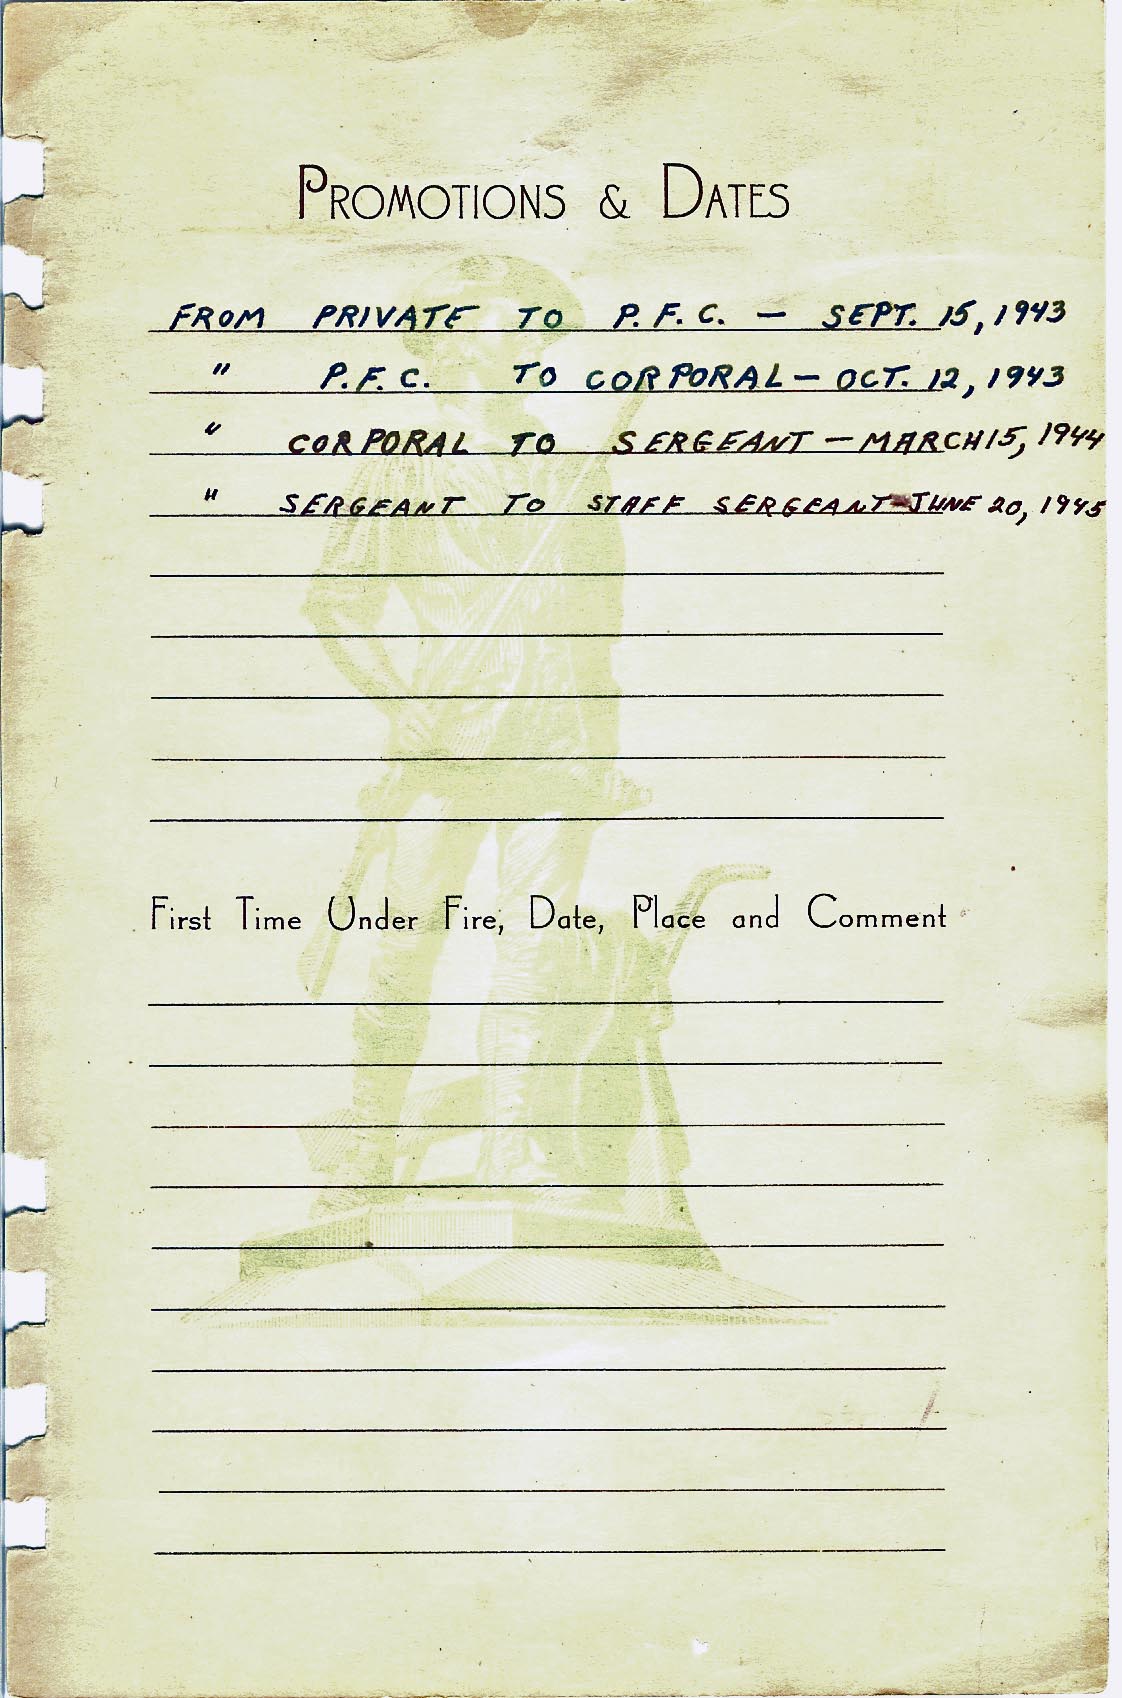 PROMOTIONS & DATES
FROM PRIVATE TO P.F.C. — SEPT. 15, 1943
" P.F.C. TO CORPORAL — OCT. 12, 1943
" CORPORAL TO SERGEANT — MARCH 15, 1944
" SERGEANT TO STAFF SERGEANT - JUNE 20, 1945
First Time Under Fire, Date, Place and Comment